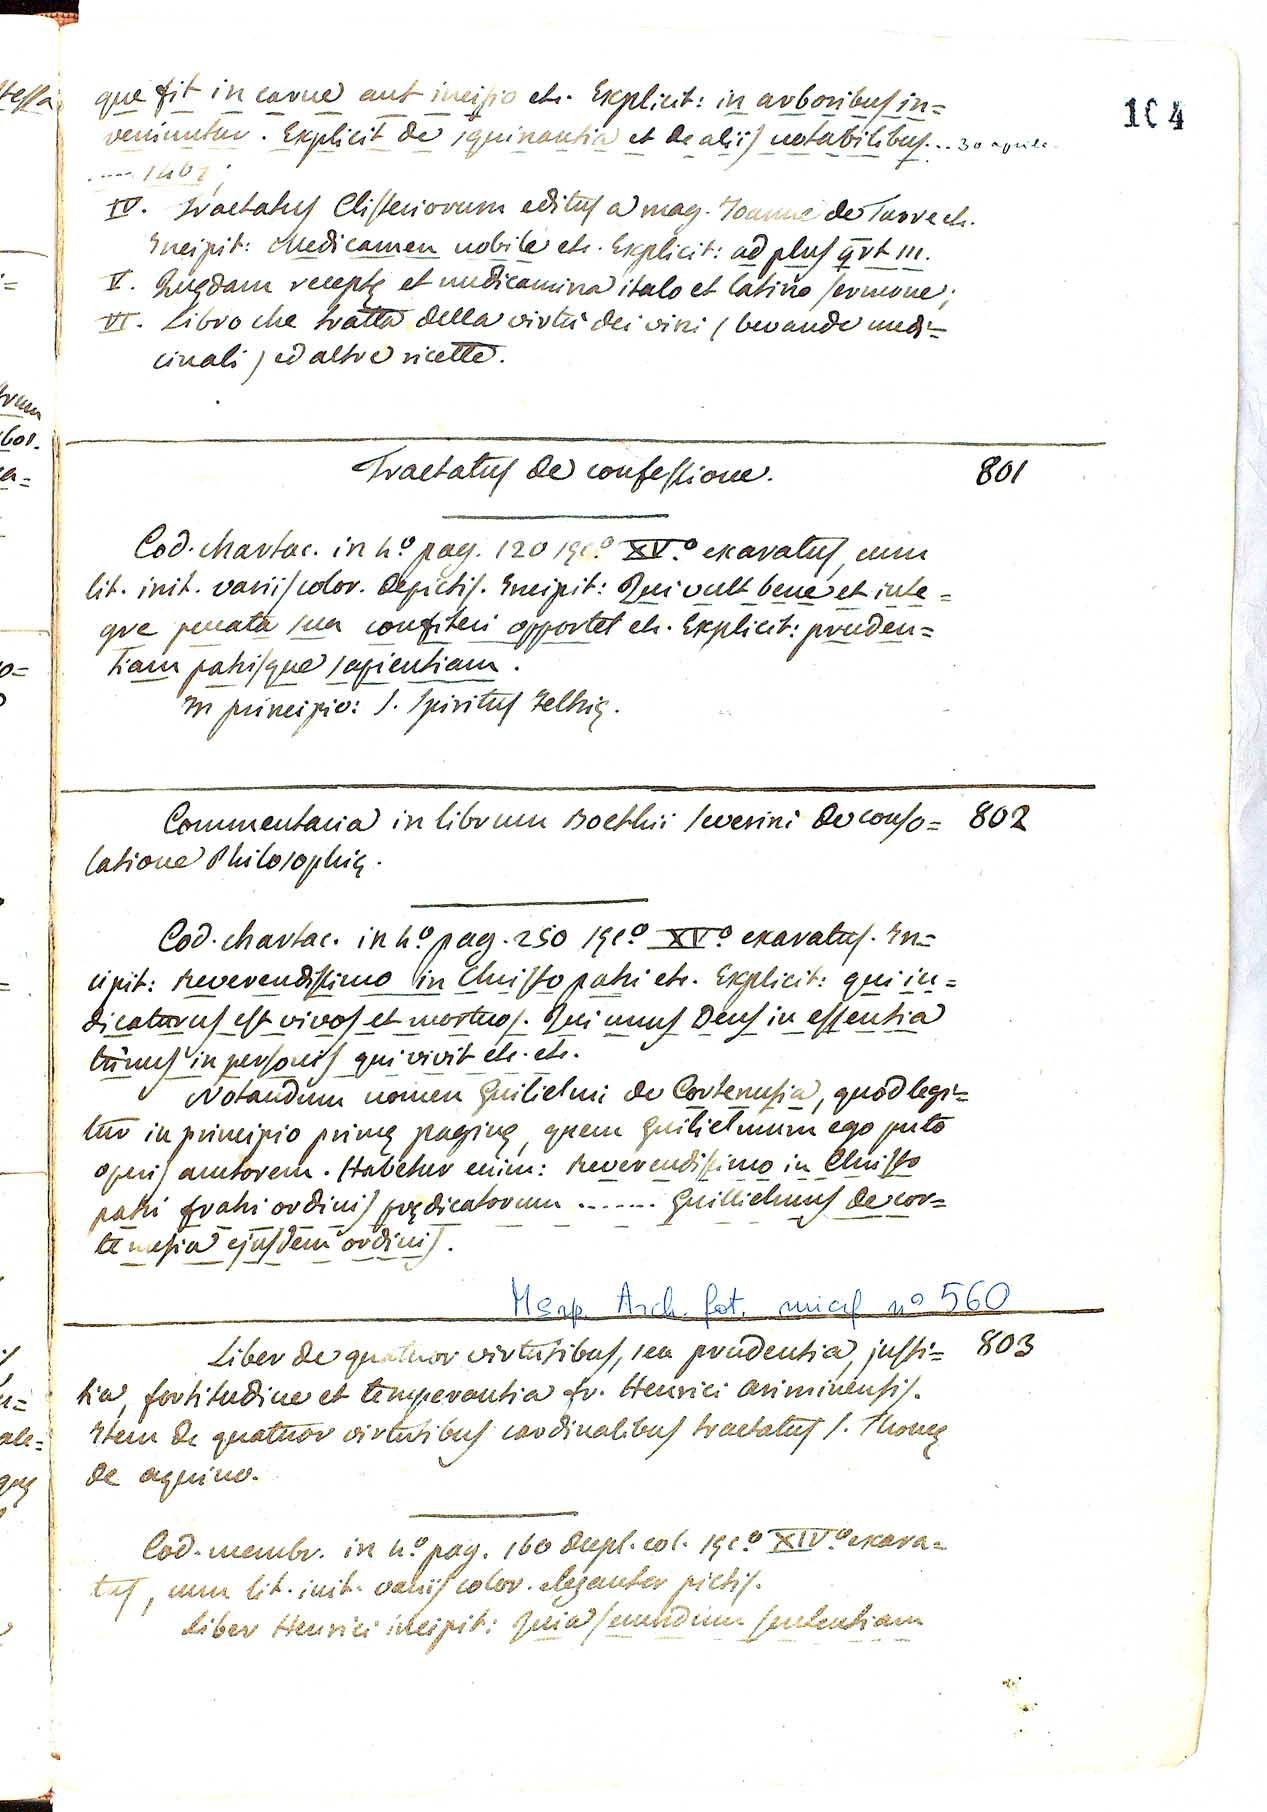 104
que fit in carne aut incisio etc. Explicit: in arboribus in=
veniuntur. Explicit de squinantia et de aliis notabilibus... 30 aprile.
..... 1462;
IV. Tractatus Clisteriorum editus a mag. Joanne de Turre etc.
Incipit: Medicamen nobile etc. Explicit: ad plus qrt m.
V. Quędam receptę et medicamina italo et latino sermone;
VI. Libro che tratta della virtù dei vini (bevande medi=
cinali) ed altre ricette.
Tractatus de confessione. 801
Cod. chartac. in 4.º pag. 120 sęc.º XV.º exaratus, cum
lit. init. variis color. depictis. Incipit: Qui vult bene et inte=
gre peccata sua confiteri opportet etc. Explicit: pruden=
tiam patrisque sapientiam.
In principio: S. Spiritus Feltrię.
Commentaria in librum Boethii Severini de conso= 802
latione Philosophię.
Cod. chartac. in 4.º pag. 250 sęc.º XV.º exaratus. In=
cipit: Reverendissimo in Christo patri etc. Explicit: qui iu=
dicaturus est vivos et mortuos. Qui unus Deus in essentia
trinus in personis qui vivit etc. etc.
Notandum nomen Guilielmi de Cortemusia, quod legi=
tur in principio primę paginę, quem Guilielmum ego puto
operis auctorem. Habetur enim: Reverendissimo in Christo
patri fratri ordinis prędicatorum ....... Guillielmus de cor=
temusia ejusdem ordinis.
Msap. Arch. fot. micrf nº 560
Liber de quatuor virtutibus, seu prudentia, justi= 803
tia, fortitudine et temperantia fr. Henrici Ariminensis.
Item de quatuor virtutibus cardinalibus tractatus S. Thomę
de Aquino.
Cod. membr. in 4.º pag. 160 dupl. col. sęc.º XIV.º exara=
tus, cum lit. init. variis color. eleganter pictis.
Liber Henrici incipit: Quia secundum sententiam